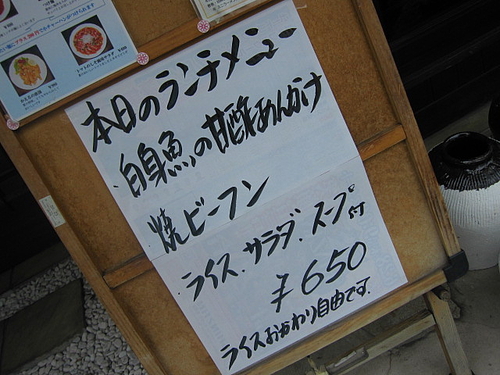 本日のランチメニュー
白身魚の甘酢あんかけ
焼ビーフン
ライス、サラダ、スープ付
¥650
ライスおかわり自由です